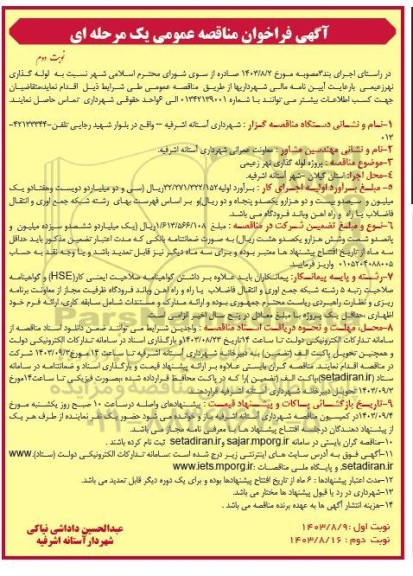 آگهی فراخوان مناقصه عمومی یک مرحله ای
نوبت دوم
در راستای اجرای بند۳مصوبه مورخ ۱۴۰۳/۸/۲ صادره از سوی شورای محترم اسلامی شهر نسبت به لوله گذاری
نهرزعیمی بارعایت آیین نامه مالی شهرداریها از طریق مناقصه عمومی طی شرایط ذیل اقدام نمایدمتقاضیان
جهت کسب اطلاعات بیشتر می توانند با شماره ۰۱۳۴۲۱۳۹۰۰۱ الی ۶واحد حقوقی شهرداری تماس حاصل نمایند.
۱-نام و نشانی دستگاه مناقصه گزار : شهرداری آستانه اشرفیه – واقع در بلوار شهید رجایی تلفن-۴۲۱۳۳۳۴۴-
۰۱۳
۲-نام و نشانی مهندسین مشاور : معاونت عمرانی شهرداری آستانه اشرفیه.
۳-موضوع مناقصه : پروژه لوله گذاری نهر زعیمی
۴-محل اجرا:استان گیلان -شهر آستانه اشرفیه.
۵- مبلغ برآورد اولیه اجرای کار : برآورد اولیه۳۲/۲۷۱/۳۲۲/۱۵۲ریال (سی و دو میلیاردو دویست وهفتادو یک
میلیون و سیصدو بیست و دو هزارو یکصدو پنجاه و دو ریال)و بر اساس فهرست بهای رشته شبکه جمع آوری و انتقال
فاضلاب یا راه و راه آهن وباند فرودگاه می باشد.
۶-نوع و مبلغ تضمین شرکت در مناقصه : مبلغ ۱/۶۱۳/۵۶۶/۱۰۸ریال (یک میلیاردو ششصدو سیزده میلیون و
پانصدو شصت وشش هزارو یکصدو هشت ریال) به صورت ضمانتنامه بانکی که مدت اعتبار تضمین مذکور باید حداقل
سه ماه از تاریخ افتتاح پیشنهاد ها معتبر بوده و برای سه ماه دیگر نیز قابل تمدید باشد و یا وجه نقد به حساب
واریز فرمایید.
۷-رشته و پایه پیمانکار: پیمانکاران باید علاوه بر داشتن گواهینامه صلاحیت ایمنی کار(HSE) و گواهینامه
صلاحیت رتبه ۵ رشته شبکه جمع آوری و انتقال فاضلاب یا راه و راه آهن وباند فرودگاه ظرفیت مجاز از معاونت برنامه
ریزی و نظارت راهبردی ریاست محترم جمهوری بوده و ارائه مدارک و مستندات شامل سابقه کاری، ارائه فرم خود
اظهاری ،حداقل یک پروژه بنا مبلغ معادل در پنج سال اخیر الزامی است.
۸-محل، مهلت و نحوه دریافت اسناد مناقصه : واجدین شرایط می توانند ضمن دانلود اسناد مناقصه از
سامانه تدارکات الکترونیکی دولت تا ساعت ۱۴تاریخ ۱۴۰۳/۰۸/۲۳و بارگذاری اسناد در سامانه تدارکات الکترونیکی دولت
و همچنین تحویل پاکت الف (تضمین) به دبیرخانه شهرداری آستانه اشرفیه تا ساعت ۱۴مورخ۱۴۰۳/۰۹/۳ شرکت
در مناقصه اقدام نمایند. مناقصه گران بایستی علاوه بر ارائه پیشنهاد قیمت و بارگذاری اسناد و ضمانتنامه در سامانه
ستاد (setadiran.ir)پاکت الف (تضمین) را که در پاکت محافظ قرارداده شده ،بصورت فیزیکی تا ساعت۱۴مورخ
۱۴۰۳/۰۹/۳ تحویل دبیرخانه شهرداری آستانه اشرفیه قراردهند.
۹-تاریخ بازگشائی پاکات و پیشنهاد قیمت : پیشنهادهای واصله درساعت ۱۰ صبح روز یکشنبه مورخ
۱۴۰۳/۰۹/۴در کمیسیون مناقصه شهرداری آستانه اشرفیه باز و خوانده می شود حضور یک نفر نماینده از طرف هر یک
از پیشنهاد دهندگان درجلسه افتتاح پیشنهاد ها با معرفی نامه مجاز می باشد.
۱۰-مناقصه گران بایستی در سامانه setadiran.ir وsajar.mporg.ir ثبت نام کرده باشند .
۱۱-آگهی فوق به آدرس سایت های اینترنتی زیر درج شده است :سامانه تدارکات الکترونیکی دولت (ستاد).www
setadiran.ir, و پایگاه ملی مناقصات :www.iets.mporg.ir
۱۲-مدت اعتبار پیشنهادها : ۶ ماه از تاریخ افتتاح پیشنهادها بوده و برای یک دوره دیگر قابل تمدید می باشد.
۱۳-شهرداری در رد یا قبول پیشنهاد ها مختار می باشد.
۱۴-هزینه انتشار آگهی ها به عهده برنده مناقصه می باشد .
نوبت اول :۱۴۰۳/۸/۹
نوبت دوم : ۱۴۰۳/۸/۱۶
عبدالحسین داداشی نیاکی
شهردارآستانه اشرفیه